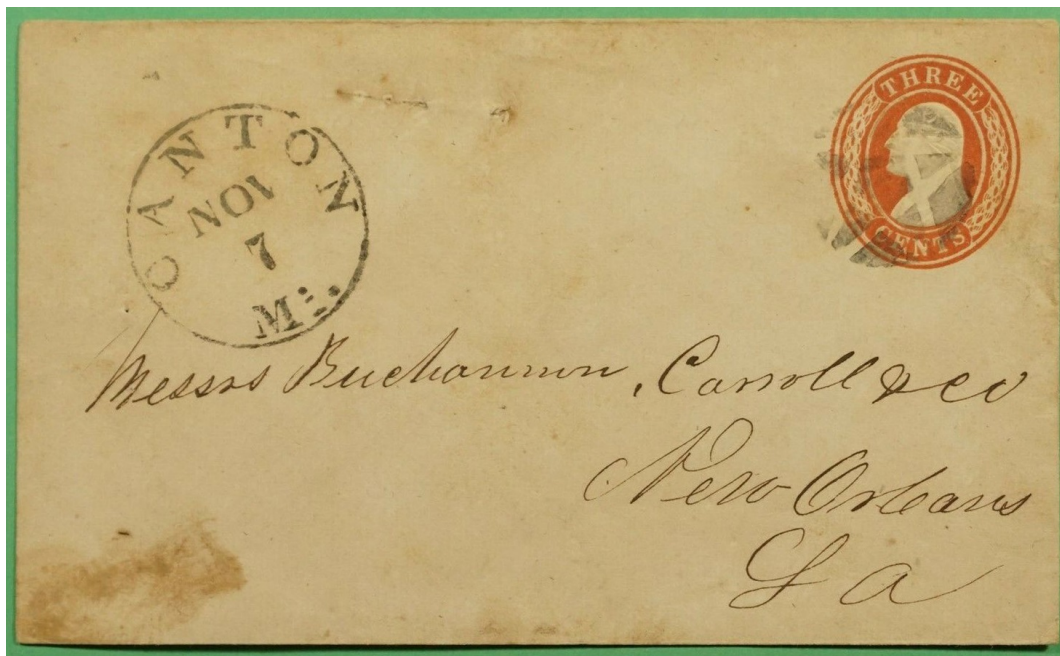 CANTON
NOV
7
Mi.
THREE
CENTS
Messrs Buchannon, Carroll & co
New Orleans
La